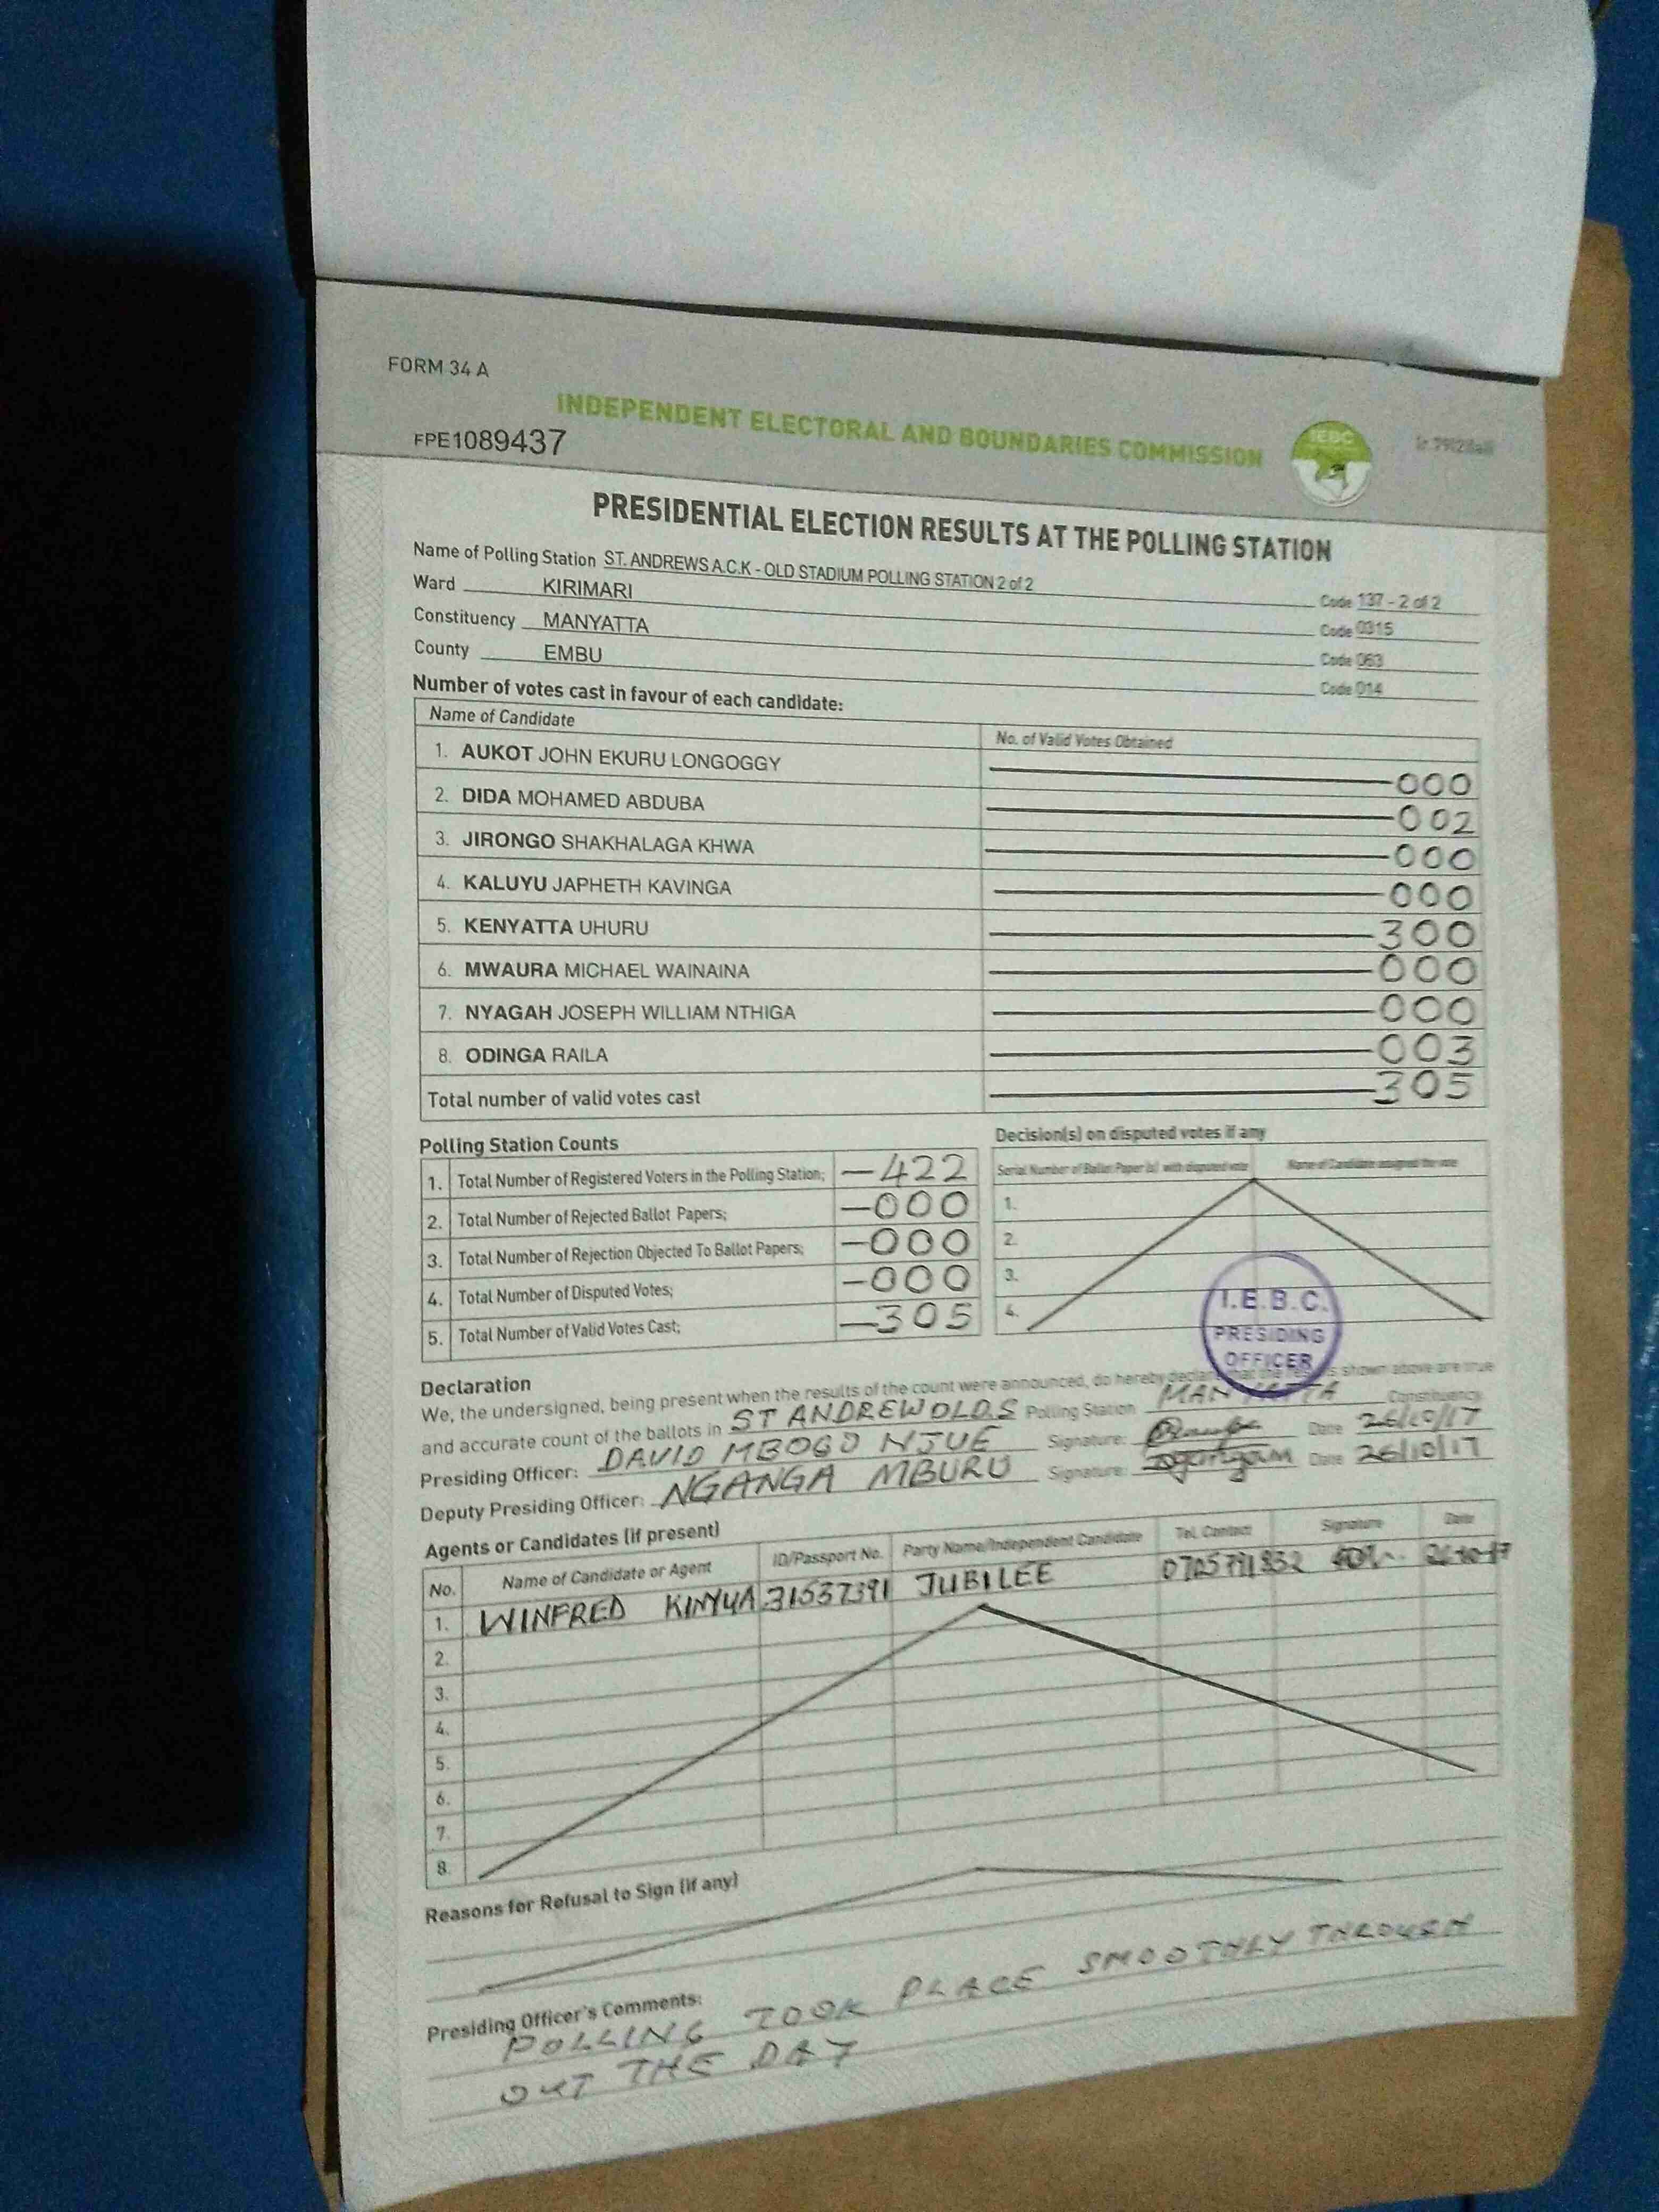 FORM 34 A
INDEPENDENT ELECTORAL AND BOUNDARIES COMMISSION
IEBC
FPE1089437
PRESIDENTIAL ELECTION RESULTS AT THE POLLING STATION
Name of Polling Station ST. ANDREWS A.C.K - OLD STADIUM POLLING STATION 2 of 2 Code 137 - 2 of 2
Ward KIRIMARI Code 0315
Constituency MANYATTA Code 063
County EMBU Code 014
Number of votes cast in favour of each candidate:
Name of Candidate No. of Valid Votes Obtained
1. AUKOT JOHN EKURU LONGOGGY 000
2. DIDA MOHAMED ABDUBA 002
3. JIRONGO SHAKHALAGA KHWA 000
4. KALUYU JAPHETH KAVINGA 000
5. KENYATTA UHURU 300
6. MWAURA MICHAEL WAINAINA 000
7. NYAGAH JOSEPH WILLIAM NTHIGA 000
8. ODINGA RAILA 003
Total number of valid votes cast 305
Polling Station Counts
1. Total Number of Registered Voters in the Polling Station; -422
2. Total Number of Rejected Ballot Papers; -000
3. Total Number of Rejection Objected To Ballot Papers; -000
4. Total Number of Disputed Votes; -000
5. Total Number of Valid Votes Cast; -305
Decision(s) on disputed votes if any
Serial Number of Ballot Paper (s) with disputed vote Name of Candidate assigned the vote
1.
2.
3.
4.
I.E.B.C.
PRESIDING
OFFICER
Declaration
We, the undersigned, being present when the results of the count were announced, do hereby declare that the results shown above are true
and accurate count of the ballots in ST ANDREW OLD.S Polling Station MANYATTA Constituency
Presiding Officer: DAVID MBOGO NJUE Signature: Date 26/10/17
Deputy Presiding Officer: NGANGA MBURU Signature: Date 26/10/17
Agents or Candidates (if present)
No. Name of Candidate or Agent ID/Passport No. Party Name/Independent Candidate Tel. Contact Signature Date
1. WINFRED KINYUA 31537391 JUBILEE 0705791832 26-10-17
2.
3.
4.
5.
6.
7.
8.
Reasons for Refusal to Sign (if any)
Presiding Officer's Comments:
POLLING TOOK PLACE SMOOTHLY THROUGH
OUT THE DAY